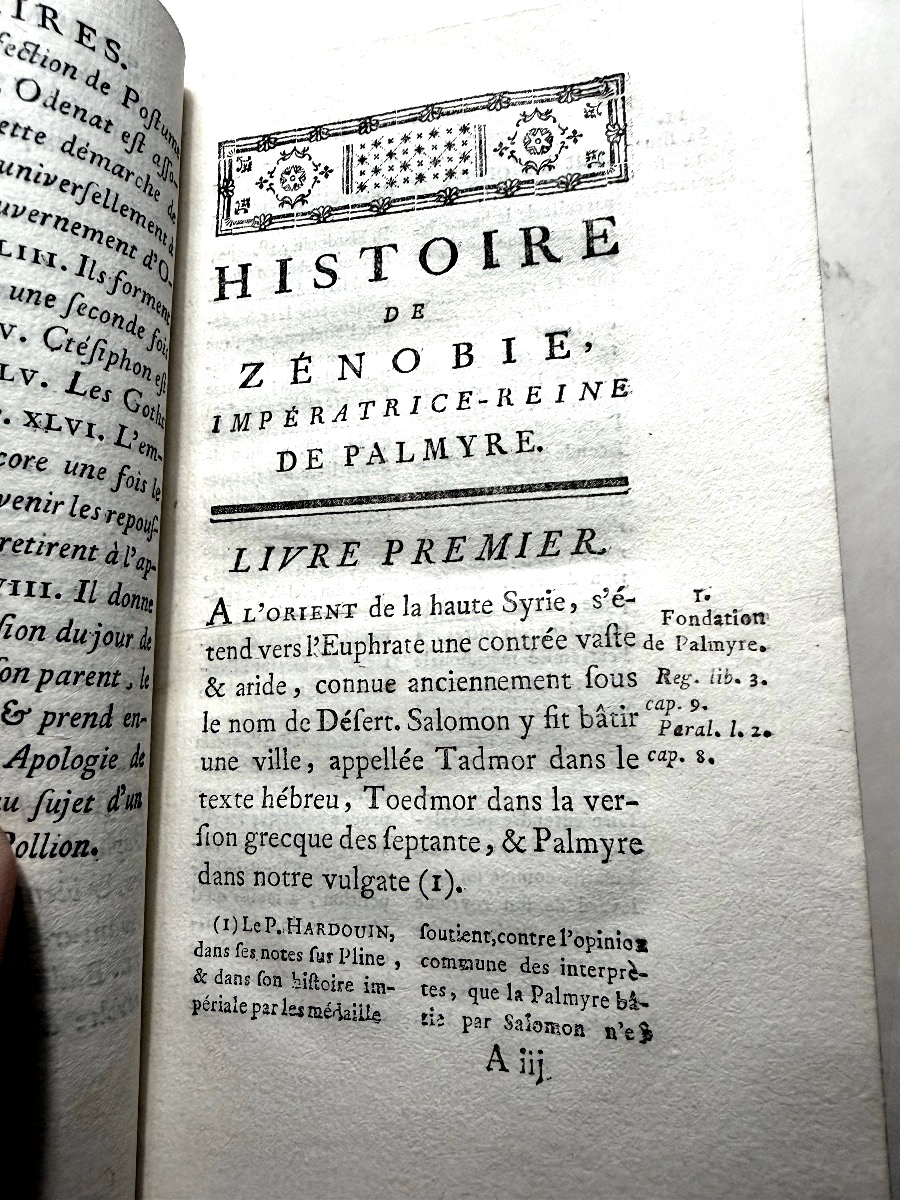 IRES.
fection de Poſtume
Odenat eſt aſſo-
ette démarche de
univerſellement à
uvernement d'O-
LIII. Ils forment
une ſeconde fois
V. Ctéſiphon eſt
LV. Les Goths
. XLVI. L'em-
core une fois le
venir les repouſ-
retirent à l'ap-
VIII. Il donne
ſion du jour de
on parent, le
& prend en-
Apologie de
au ſujet d'un
Pollion.
HISTOIRE
DE
ZÉNOBIE,
IMPÉRATRICE-REINE
DE PALMYRE.
LIVRE PREMIER.
A L'ORIENT de la haute Syrie, s'é-
tend vers l'Euphrate une contrée vaſte
& aride, connue anciennement ſous
le nom de Déſert. Salomon y fit bâtir
une ville, appellée Tadmor dans le
texte hébreu, Toedmor dans la ver-
ſion grecque des ſeptante, & Palmyre
dans notre vulgate (1).
I.
Fondation
de Palmyre.
Reg. lib. 3.
cap. 9.
Paral. l. 2.
cap. 8.
(1) Le P. HARDOUIN,
dans ſes notes ſur Pline,
& dans ſon hiſtoire im-
périale par les médaille
ſoutient, contre l'opinion
commune des interprè-
tes, que la Palmyre bâ-
tie par Salomon n'eſt
A iij